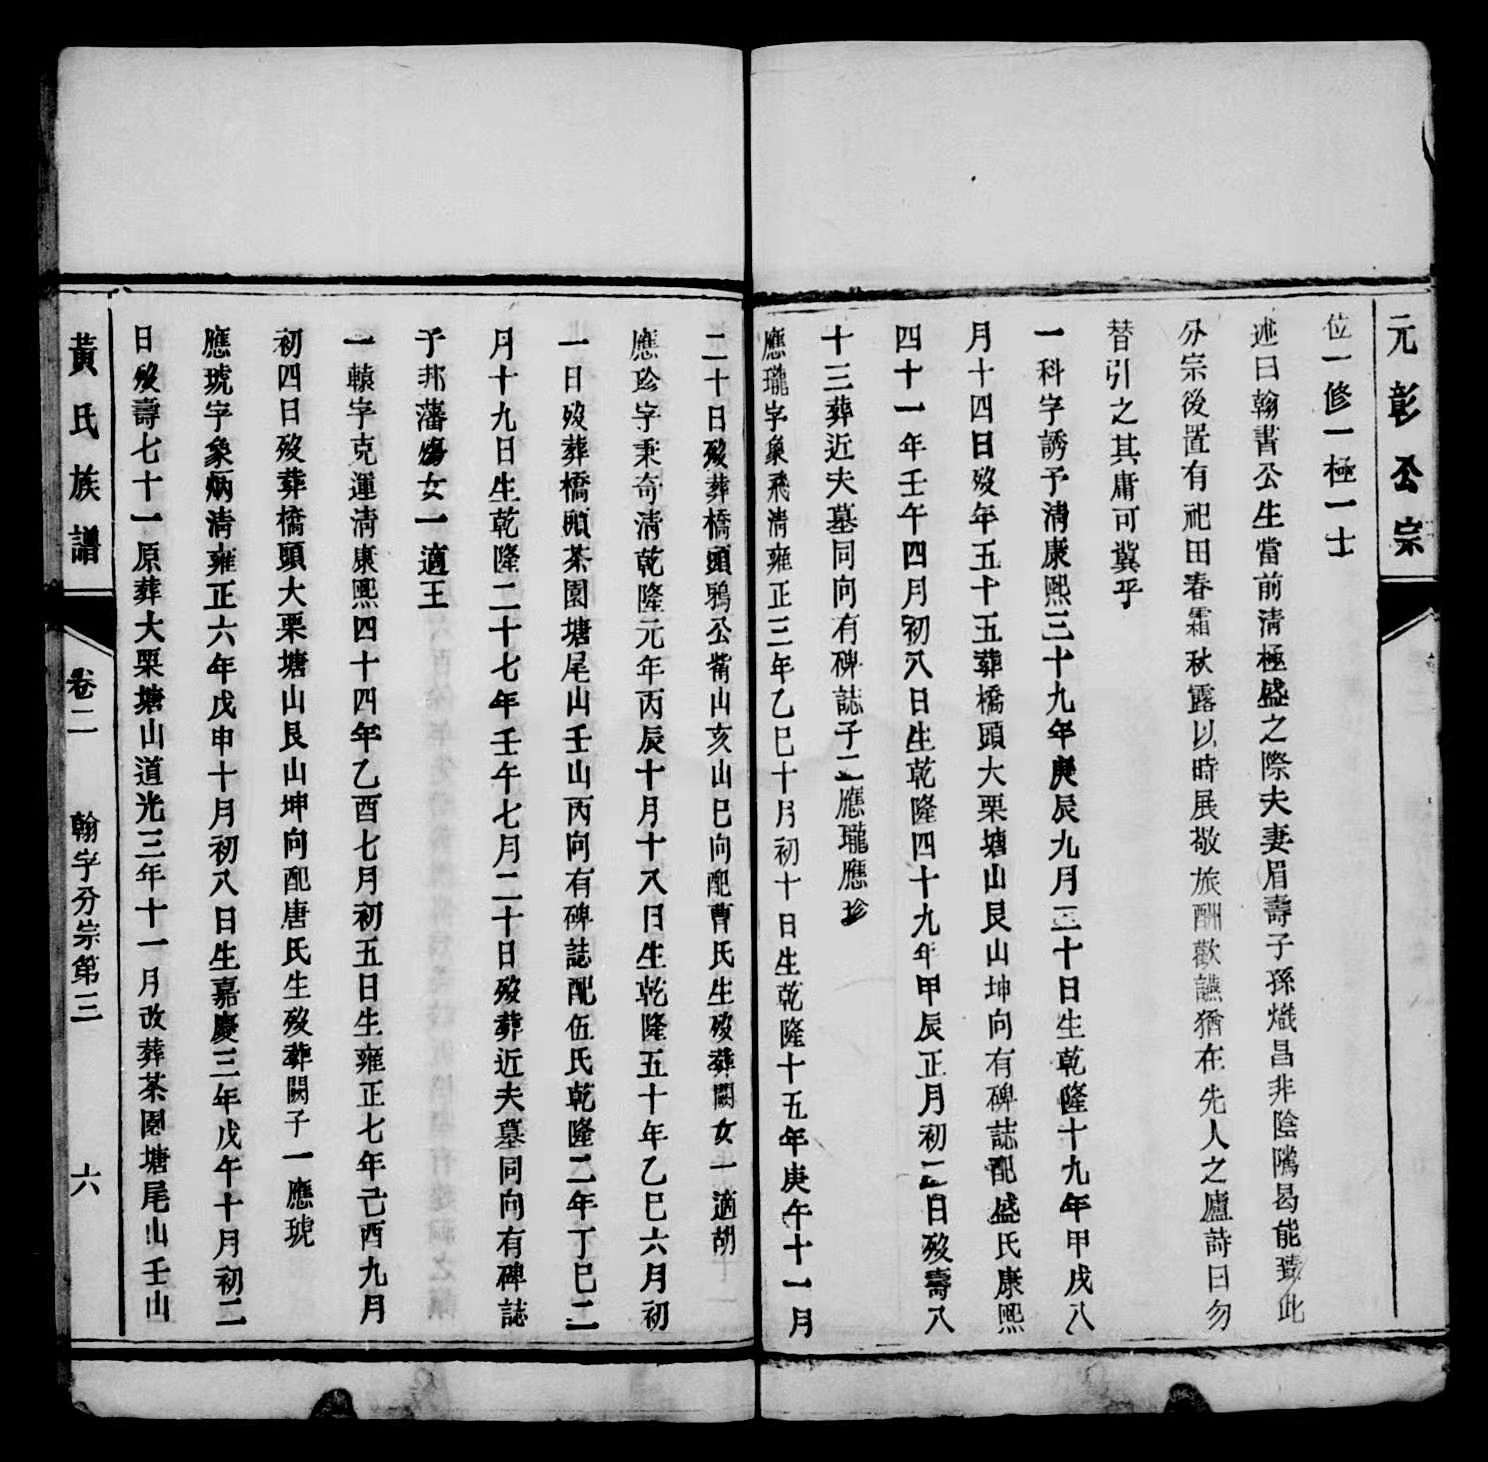 元彰公宗
位一修一極一士
述曰翰書公生當前清極盛之際夫妻眉壽子孫熾昌非陰隲曷能致此
分宗後置有祀田春霜秋露以時展敬旅酬歡讌猶在先人之廬詩曰勿
替引之其庸可冀乎
一科字誘予清康熙三十九年庚辰九月三十日生乾隆十九年甲戌八
月十四日歿年五十五葬橋頭大栗塘山艮山坤向有碑誌配盛氏康熙
四十一年壬午四月初八日生乾隆四十九年甲辰正月初二日歿壽八
十三葬近夫墓同向有碑誌子二應瓏應珍
應瓏字象飛清雍正三年乙巳十月初十日生乾隆十五年庚午十一月
二十日歿葬橋頭鴉公嘴山亥山巳向配曹氏生歿葬闕女一適胡
應珍字秉奇清乾隆元年丙辰十月十八日生乾隆五十年乙巳六月初
一日歿葬橋頭茶園塘尾山壬山丙向有碑誌配伍氏乾隆二年丁巳二
月十九日生乾隆二十七年壬午七月二十日歿葬近夫墓同向有碑誌
予邦藩殤女一適王
一轅字克運清康熙四十四年乙酉七月初五日生雍正七年己酉九月
初四日歿葬橋頭大栗塘山艮山坤向配唐氏生歿葬闕子一應琥
應琥字象炳清雍正六年戊申十月初八日生嘉慶三年戊午十月初二
日歿壽七十一原葬大栗塘山道光三年十一月改葬茶園塘尾山壬山
黃氏族譜 卷二 翰字分宗第三 六